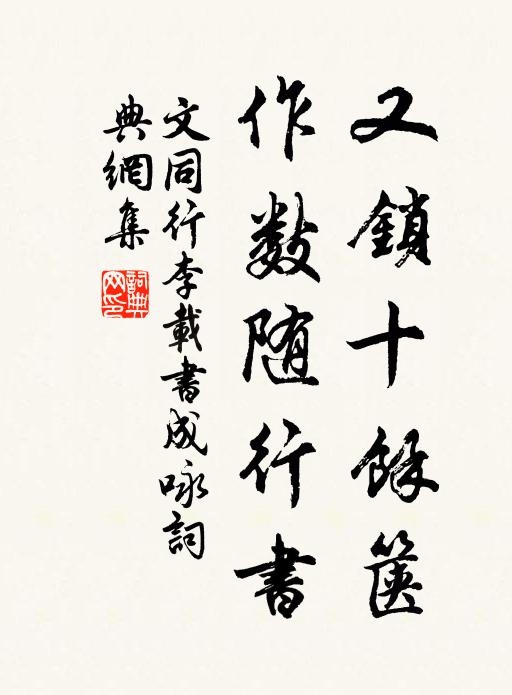 又鎖十餘篋
作数随行書
文同行李載書成咏詞
典網集
詞典網印